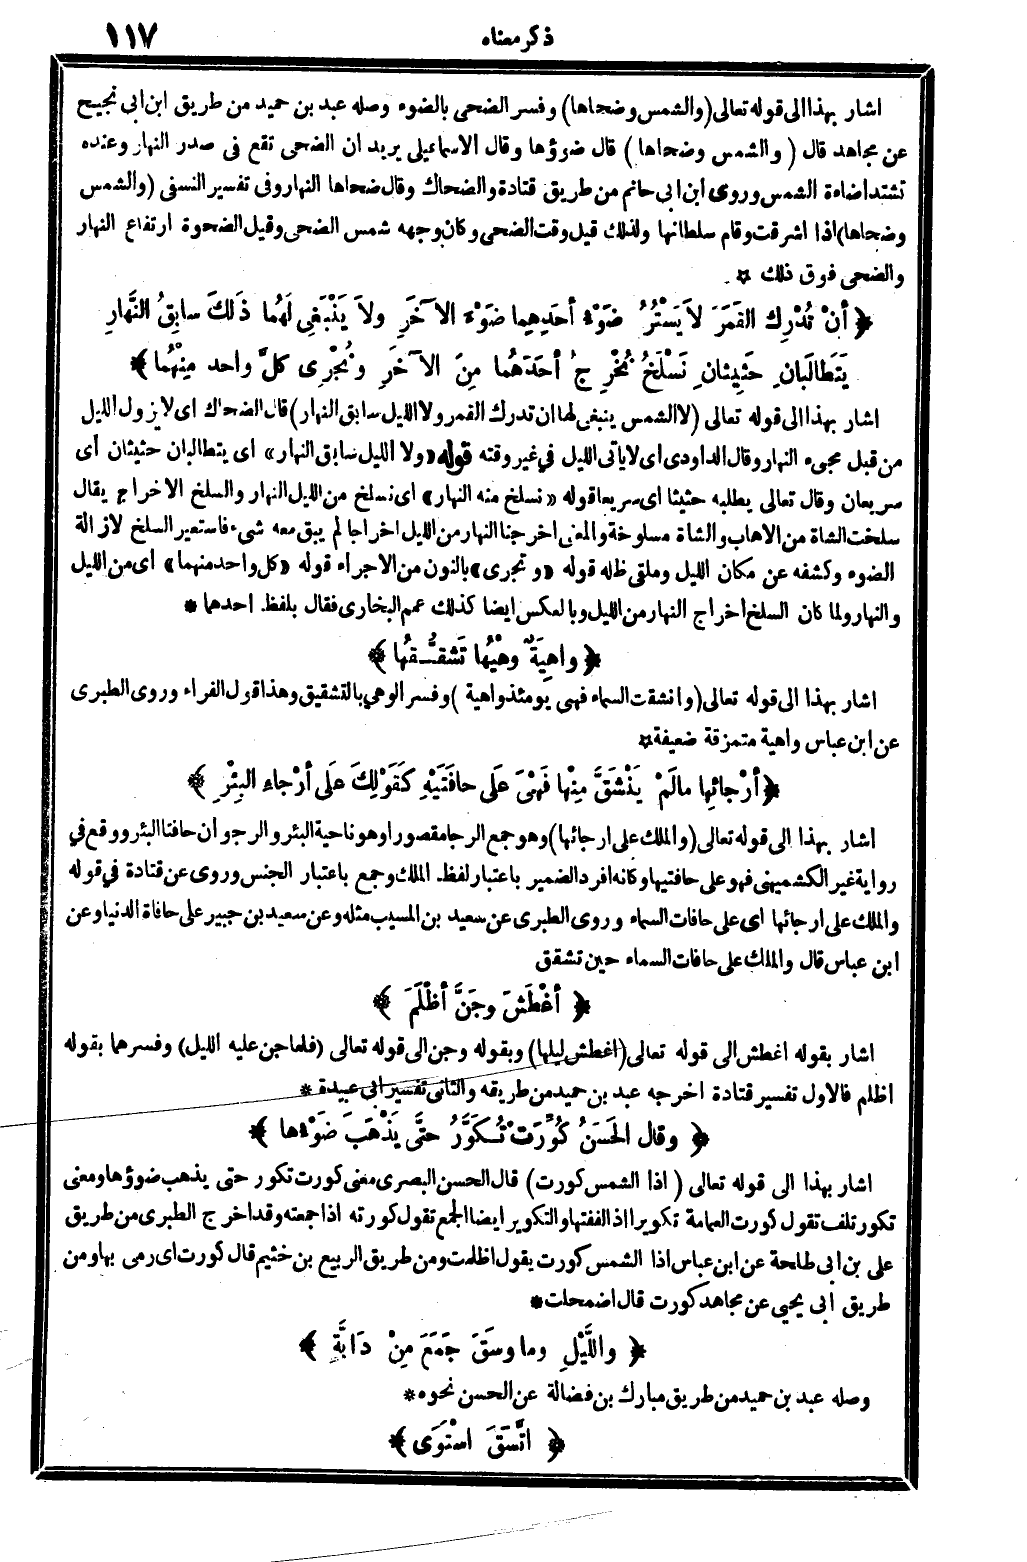 ذكر معناه ١١٧
اشار بهذا الى قوله تعالى (والشمس وضحاها) وفسر الضحى بالضوء وصله عبد بن حميد من طريق ابن ابى نجيح
عن مجاهد قال (والشمس وضحاها) قال ضوؤها وقال الاسماعيلى يريد ان الضحى تقع فى صدر النهار وعنده
تشتد اضاءة الشمس وروى ابن ابى حاتم من طريق قتادة والضحاك وقال ضحاها النهار وفى تفسير النسفى (والشمس
وضحاها) اذا اشرقت وقام سلطانها ولذلك قيل وقت الضحى وكان وجهه شمس الضحى وقيل الضحوة ارتفاع النهار
والضحى فوق ذلك *
﴿ أنْ تُدْرِكَ القَمَرَ لاَ يَسْتُرُ ضَوْءُ أحَدِهِما ضَوْءَ الآخَرِ ولاَ يَنْبَغِى لَهُما ذَلكَ سابِقُ النَّهارِ
يَتَطالَبانِ حَثِيثانِ نَسْلَخُ نُخْرِجُ أحَدَهُما مِنَ الآخَرِ ونُجْرِى كلَّ واحد مِنْهُما ﴾
اشار بهذا الى قوله تعالى (لا الشمس ينبغى لها ان تدرك القمر ولا الليل سابق النهار) قال الضحاك اى لا يزول الليل
من قبل مجىء النهار وقال الداودى اى لا ياتى الليل في غير وقته قوله «ولا الليل سابق النهار» اى يتطالبان حثيثان أى
سريعان وقال تعالى يطلبه حثيثا اى سريعا قوله «نسلخ منه النهار» اى نسلخ من الليل النهار والسلخ الاخراج يقال
سلخت الشاة من الاهاب والشاة مسلوخة والمعنى اخرجنا النهار من الليل اخراجا لم يبق معه شىء فاستعير السلخ لازالة
الضوء وكشفه عن مكان الليل وملقى ظله قوله «ونجرى» بالنون من الاجراء قوله «كل واحد منهما» اى من الليل
والنهار ولما كان السلخ اخراج النهار من الليل وبالعكس ايضا كذلك عمم البخارى فقال بلفظ احدهما *
﴿ واهِيَةٌ وهْيُها تَشَقُّقُها ﴾
اشار بهذا الى قوله تعالى (وانشقت السماء فهى يومئذ واهية) وفسر الوهي بالتشقيق وهذا قول الفراء وروى الطبرى
عن ابن عباس واهية متمزقة ضعيفة *
﴿ أرْجائِها مالَمْ يَنْشَقَّ مِنْها فَهْىَ عَلَى حافَتَيْهِ كَقَوْلِكَ عَلَى أرْجاءِ البِئْرِ ﴾
اشار بهذا الى قوله تعالى (والملك على ارجائها) وهو جمع الرجا مقصورا وهو ناحية البئر والرجوان حافتا البئر ووقع في
رواية غير الكشميهنى فهو على حافتيها وكانه افرد الضمير باعتبار لفظ الملك وجمع باعتبار الجنس وروى عن قتادة في قوله
والملك على ارجائها اى على حافات السماء وروى الطبرى عن سعيد بن المسيب مثله وعن سعيد بن جبير على حافاة الدنيا وعن
ابن عباس قال والملك على حافات السماء حين تشقق
﴿ أغْطَشَ وجَنَّ أظْلَمَ ﴾
اشار بقوله اغطش الى قوله تعالى (اغطش ليلها) وبقوله وجن الى قوله تعالى (فلما جن عليه الليل) وفسرهما بقوله
اظلم فالاول تفسير قتادة اخرجه عبد بن حميد من طريقه والثانى تفسير ابى عبيدة *
﴿ وقال الحَسَنُ كُوِّرَتْ تُكَوَّرُ حتَّى يَذْهَبَ ضَوْءُها ﴾
اشار بهذا الى قوله تعالى (اذا الشمس كورت) قال الحسن البصرى معنى كورت تكور حتى يذهب ضوؤها ومعنى
تكور تلف تقول كورت العمامة تكويرا اذا لففتها والتكوير ايضا الجمع تقول كورته اذا جمعته وقد اخرج الطبرى من طريق
على بن ابى طلحة عن ابن عباس اذا الشمس كورت يقول اظلمت ومن طريق الربيع بن خثيم قال كورت اى رمى بها ومن
طريق ابى يحيى عن مجاهد كورت قال اضمحلت *
﴿ واللَّيْلِ وما وسَقَ جَمَعَ مِنْ دَابَّةٍ ﴾
وصله عبد بن حميد من طريق مبارك بن فضالة عن الحسن نحوه *
﴿ اتَّسَقَ اسْتَوَى ﴾